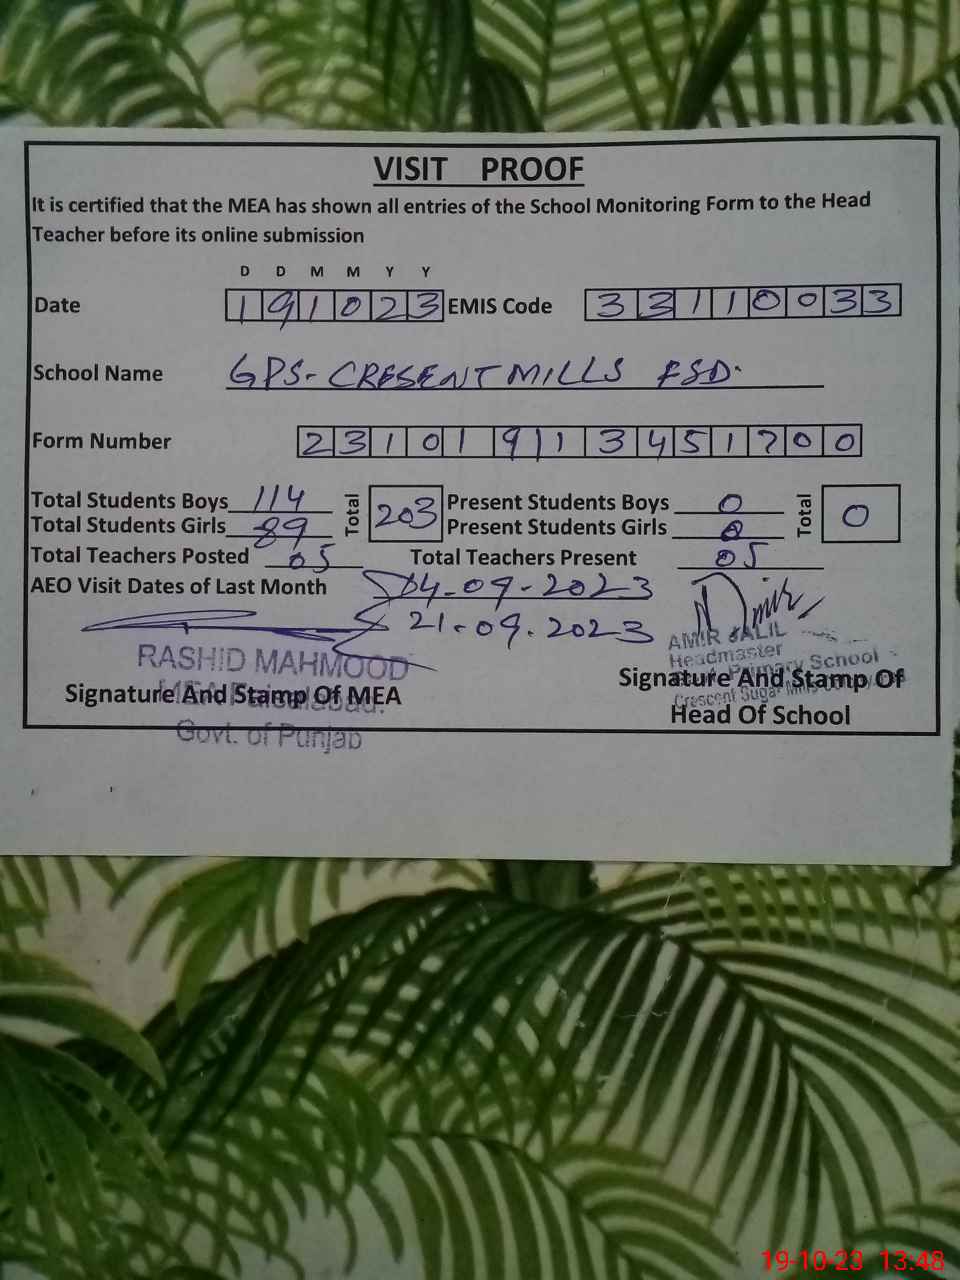 VISIT PROOF
It is certified that the MEA has shown all entries of the School Monitoring Form to the Head
Teacher before its online submission
D D M M Y Y
Date 191023 EMIS Code 33110033
School Name GPS- CRESENT MILLS FSD.
Form Number 231019113451700
Total Students Boys 114 Total 203 Present Students Boys 0 Total 0
Total Students Girls 89 Present Students Girls 0
Total Teachers Posted 05 Total Teachers Present 05
AEO Visit Dates of Last Month 04-09-2023
21.09.2023
RASHID MAHMOOD
MEA Faisalabad.
Govt. of Punjab
Signature And Stamp Of MEA
AMIR JALIL
Headmaster
Primary School
Crescent Sugar Mills
Signature And Stamp Of
Head Of School
19-10-23 13:48